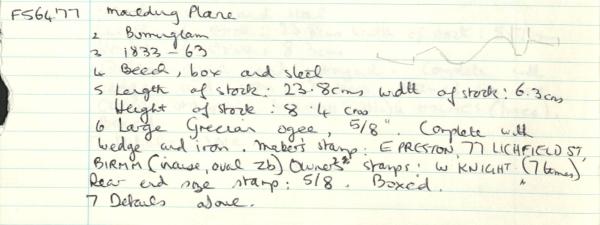 F56477 Moulding Plane
2 Birmingham
3 1833-63
4 Beech, box and steel
5 Length of stock: 23.8cms width of stock: 6.3cms
Height of stock: 8.4 cms
6 Large Grecian ogee, 5/8". Complete with
wedge and iron. Maker's stamp: E PRESTON, 77 LICHFIELD ST,
BIRMM (incuse, oval zb) Owner's stamps: W KNIGHT (7 times)
Rear end size stamp: 5/8. Boxed.
7 Details above.